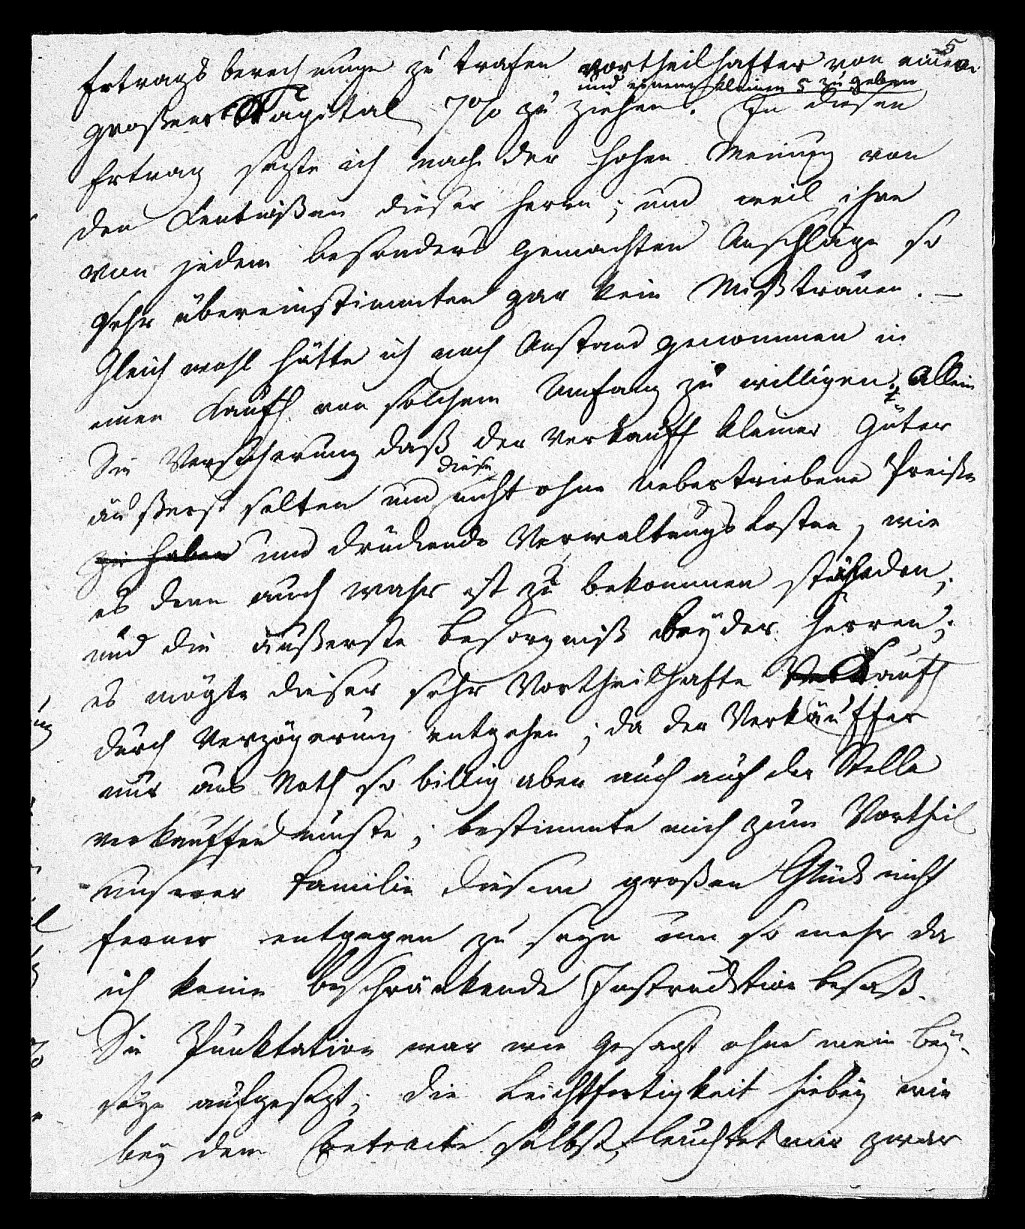 5
Ertrags berechnunge zu trafen vortheilhafter von einem
und einem kleinen 5 zu geben
großeren Kapital 7% zu ziehen. In diesen
Ertrag sezte ich nach der hohen Meinung von
den Kentnißen dieser Herrn; und weil ihre
von jedem besonders gemachten Anschläge so
sehr übereinstimmten gar kein Mißtrauen. —
Gleich wohl hätte ich noch Anstand genommen in
einen Kauff von solchem Umfang zu willigen. Allein
Die Versicherung daß der Verkauff kleiner Güter
diese
äußerst selten und nicht ohne uebertriebene Preiße
zu haben und drückende Verwaltungs kosten, wie
es denn auch wahr ist zu bekommen stünden,
und die äußerste besorgniß beyder Herren,
es mögte dieser sehr Vortheilhafte Kauff
durch Verzögerung entgehen; da der Verkäuffer
nur aus Noth so billig aber auch auf der Stelle
verkauffen müste, bestimmte mich zum Vortheil
unserer familie diesem großen Glück nicht
ferner entgegen zu seyn um so mehr da
ich keine beschränkende Instrucktion besaß.
Die Punktation war wie gesagt ohne mein bey-
seyn aufgesezt, die Leichtfertigkeit hiebey wie
bey dem Contracte selbst, leuchtet mir zwar